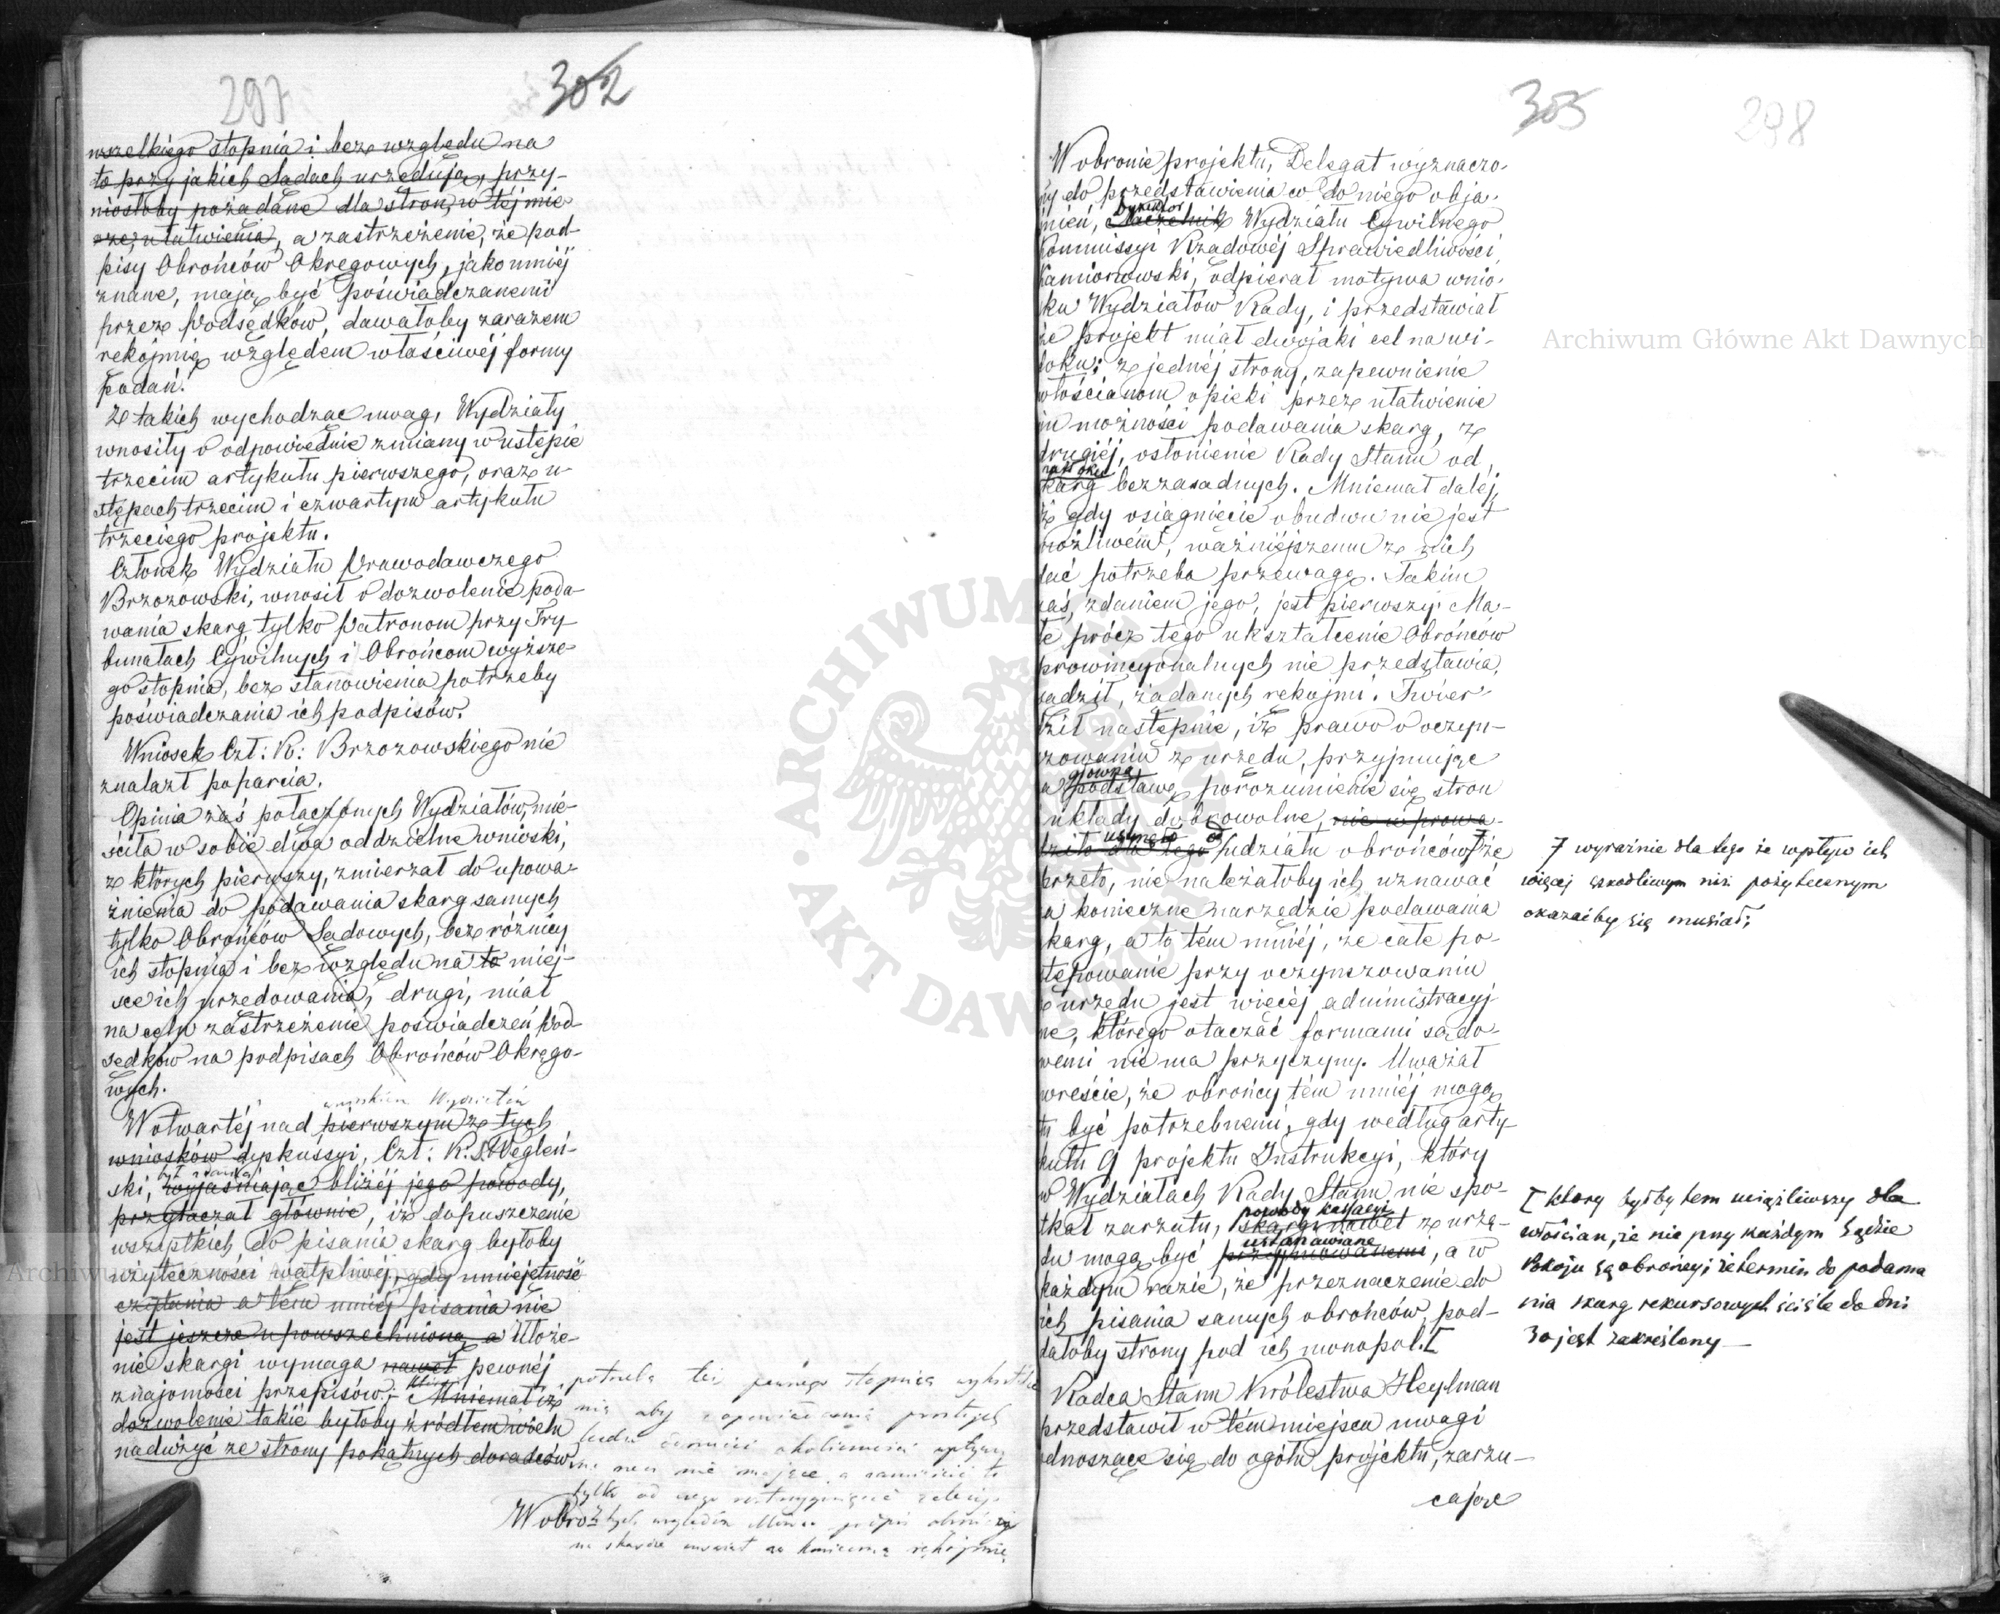 297
302
wszelkiego stopnia i bez względu na
to przy jakich Sądach urzędują, przy-
niosłoby pożądane dla stron, w téj mie-
rze, ułatwienia, a zastrzeżenie, że pod-
pisy Obrońców Okręgowych, jako mniéj
znane, mają być poświadczanemi
przez Podsędków, dawałoby zarazem
rękojmię względem właściwéj formy
podań.
Z takich wychodząc uwag, Wydziały
wnosiły o odpowiednie zmiany w ustępie
trzecim artykułu pierwszego, oraz u-
stępach trzecim i czwartym artykułu
trzeciego projektu.
Członek Wydziału Prawodawczego
Brzozowski, wnosił o dozwolenie poda-
wania skarg tylko Patronom przy Try-
bunałach Cywilnych i Obrońcom wyższe-
go stopnia, bez stanowienia potrzeby
poświadczania ich podpisów.
Wniosek Czł: R: Brzozowskiego nie
znalazł poparcia.
Opinia zaś połączonych Wydziałów, mie-
ściła w sobie dwa oddzielne wnioski,
z których pierwszy, zmierzał do upowa-
żnienia do podawania skarg samych
tylko Obrońców Sądowych, bez różnicy
ich stopnia i bez względu na to miéj-
sce ich urzędowania, drugi, miał
na celu zastrzeżenie poświadczeń Pod-
sędków na podpisach Obrońców Okręgo-
wych.
wnioskiem Wydziałów
W otwartéj nad pierwszym z tych
wniosków dyskussyi, Czł: R: S. Węgleń-
ski, wyjaśniając bliżéj jego powody,
przytaczał głównie, iż dopuszczenie
wszystkich do pisania skarg byłoby
użyteczności wątpliwéj, gdy umiejętność
czytania a tém mniéj pisania nie
jest jeszcze upowszechnioną, a Ułoże-
nie skargi wymaga nawet pewnéj
znajomości przepisów,- Mniemał iż
dozwolenie takie byłoby źródłem wielu
nadużyć ze strony pokątnych doradców,
potrzeba też pewnego stopnia wykształce
nia aby zapowiedzenia prostych
ludzi
na nich nie mające, a zamieścić te
tylko od czego rozstrzygnięcie zależy.
Z tych względów Mówca podpis obrońcy
na skardze uważał za konieczną rękojmię.
W obro-
303
298
W obronie projektu, Delegat wyznaczo-
ny do przedstawienia w do niego obja-
śnień, Naczelnik Wydziału Cywilnego
Dyrektor
Kommissyi Rządowéj Sprawiedliwości,
Kamionowski, odpierał motywa wnio-
sku Wydziałów Rady, i przedstawiał
że projekt miał dwojaki cel na wi-
doku: z jednéj strony, zapewnienie
włościanom opieki przez ułatwienie
im możności podawania skarg, z
drugiéj, osłonienie Rady Stanu od
nawału
skarg bezzasadnych. Mniemał daléj,
że gdy osiągnięcie obudwu nie jest
możliwém, ważniejszemu z nich
dać potrzeba przewagę. Takim
zaś, zdaniem jego, jest pierwszy. Ma-
łe prócz tego ukształcenie Obrońców
prowincyonalnych nie przedstawia,
sądził, żądanych rękojmi. Twier-
dził następnie, iż prawo o oczyn-
szowaniu z urzędu, przyjmując
główną
za podstawę porozumienie się stron
i układy dobrowolne, nie wprowa-
usunęło od
dziło dla tego udziału obrońców, że
przeto, nie należałoby ich uznawać
za konieczne narzędzie podawania
skarg, a to tém mniéj, że całe po-
stępowanie przy oczynszowaniu
z urzędu jest więcéj administracyj
ne, którego otaczać formami sądo-
wemi nie ma przyczyny. Uważał
wreście, że obrońcy tém mniéj mogą
tu być potrzebnemi, gdy według arty-
kułu 9 projektu Instrukcyi, który
w Wydziałach Rady Stanu nie spo-
tkał zarzutu, skargi nawet z urzę-
powody kassacyi
du mogą być przyjmowanemi, a w
ustanawiane
każdym razie, że przeznaczenie do
ich pisania samych obrońców, pod-
dałoby strony pod ich monopol. [
Radca Stanu Królestwa Heylman
przedstawił w tém miejscu uwagi
odnoszące się do ogółu projektu, zarzu-
cając
7 wyraźnie dla tego że wpływ ich
więcej szkodliwym niż pożytecznym
okazaćby się musiał;
[ który byłby tem uciążliwszy dla
włościan, że nie przy każdym Sądzie
Pokoju są obrońcy; że termin do podawa
nia skarg rekursowych ściśle do dni
30 jest zakreślony —
ARCHIWUM GŁÓWNE AKT DAWNYCH
Archiwum Główne Akt Dawnych
Archiwum Główne Akt Dawnych